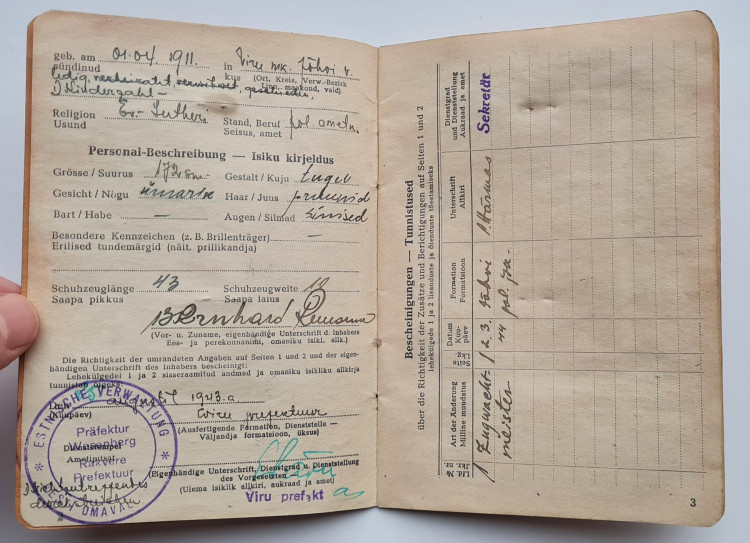 geb. am 01.04 1911. in Viru mk. Jõhvi v.
sündinud kus (Ort, Kreis, Verw.-Bezirk
linn, maakond, vald)
ledig, verheiratet, verwitwet, geschieden,
Kinderzahl –
Religion Ev.-Luther. Stand, Beruf pol. ametn.
Usund Seisus, amet
Personal-Beschreibung — Isiku kirjeldus
Grösse / Suurus 172 sm. Gestalt / Kuju
Gesicht / Nägu ümarik Haar / Juus pruunid
Bart / Habe — Augen / Silmad sinised
Besondere Kennzeichen (z. B. Brillenträger) —
Erilised tundemärgid (näit. prillikandja)
Schuhzeuglänge 43 Schuhzeugweite
Saapa pikkus Saapa laius
Bernhard
(Vor- u. Zuname, eigenhändige Unterschrift d. Inhabers
Ees- ja perekonnanimi, omaniku isikl. allk.)
Die Richtigkeit der umrandeten Angaben auf Seiten 1 und 2 und der eigen-
händigen Unterschrift des Inhabers bescheinigt:
Lehekülgedel 1 ja 2 sisseraamitud andmed ja omaniku isikliku allkirja
tunnistab õigeks:
Den august 1943.a
(Kuupäev) Viru prefektuur
(Ausfertigende Formation, Dienststelle —
Väljaandja formatsioon, üksus)
Dienststempel
Ametipitsat
(Eigenhändige Unterschrift, Dienstgrad u. Dienststellung
des Vorgesetzten)
(Ülema isiklik allkiri, aukraad ja amet)
Viru prefekt
ESTNISCHE VERWALTUNG
Präfektur
Wesenberg
Rakvere
Prefektuur
EESTI OMAVAL
Nichtzutreffendes
durchstreichen
Bescheinigungen — Tunnistused
über die Richtigkeit der Zusätze und Berichtigungen auf Seiten 1 und 2
lehekülgede 1 ja 2 lisanduste ja õienduste tõestamiseks
Lfd. №
Jkr. nr.
Art der Änderung
Milline muudatus
Seite
Lkg.
Datum
Kuu-
päev
Formation
Formatsioon
Unterschrift
Allkiri
Dienstgrad
und Dienststellung
Aukraad ja amet
1 Zugwacht- 1 2 3. Jõhvi Sekretär
meister 44 pol. jsk.
3